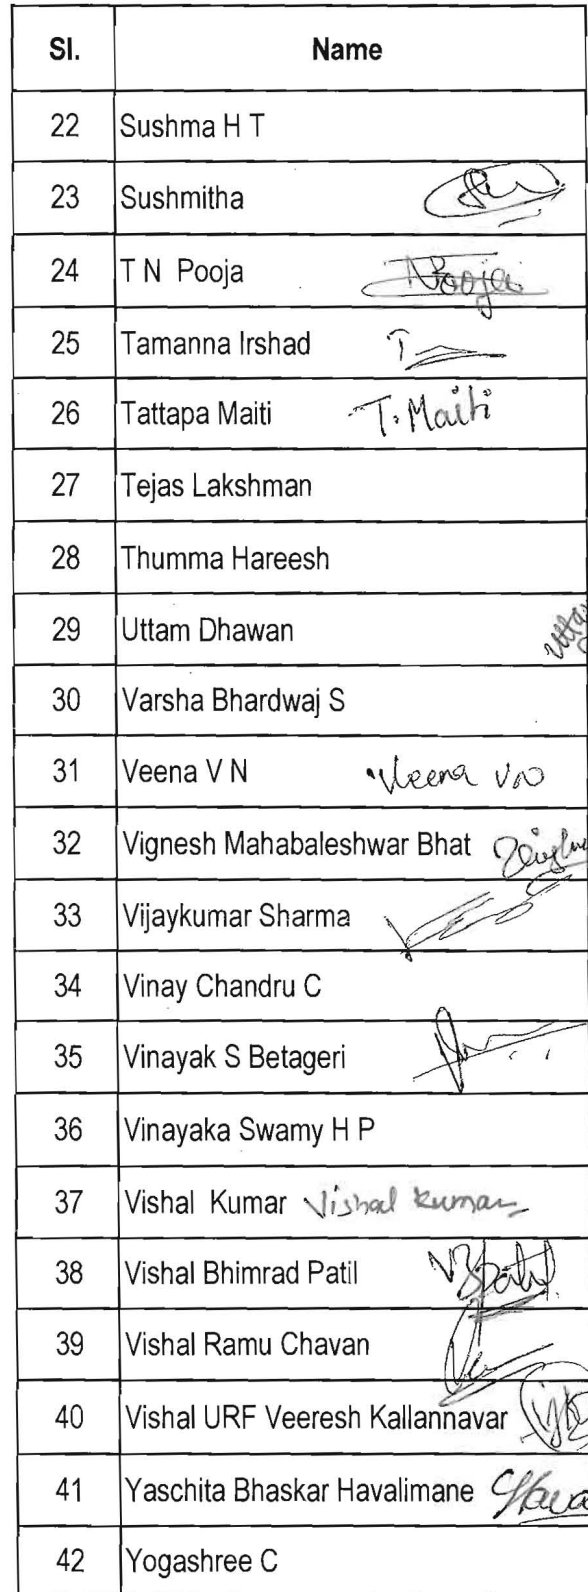 Sl. Name
22 Sushma H T
23 Sushmitha
24 T N Pooja Pooja
25 Tamanna Irshad
26 Tattapa Maiti T. Maiti
27 Tejas Lakshman
28 Thumma Hareesh
29 Uttam Dhawan
30 Varsha Bhardwaj S
31 Veena V N Veena VN
32 Vignesh Mahabaleshwar Bhat
33 Vijaykumar Sharma
34 Vinay Chandru C
35 Vinayak S Betageri
36 Vinayaka Swamy H P
37 Vishal Kumar Vishal Kumar
38 Vishal Bhimrad Patil VBpatil
39 Vishal Ramu Chavan
40 Vishal URF Veeresh Kallannavar
41 Yaschita Bhaskar Havalimane
42 Yogashree C